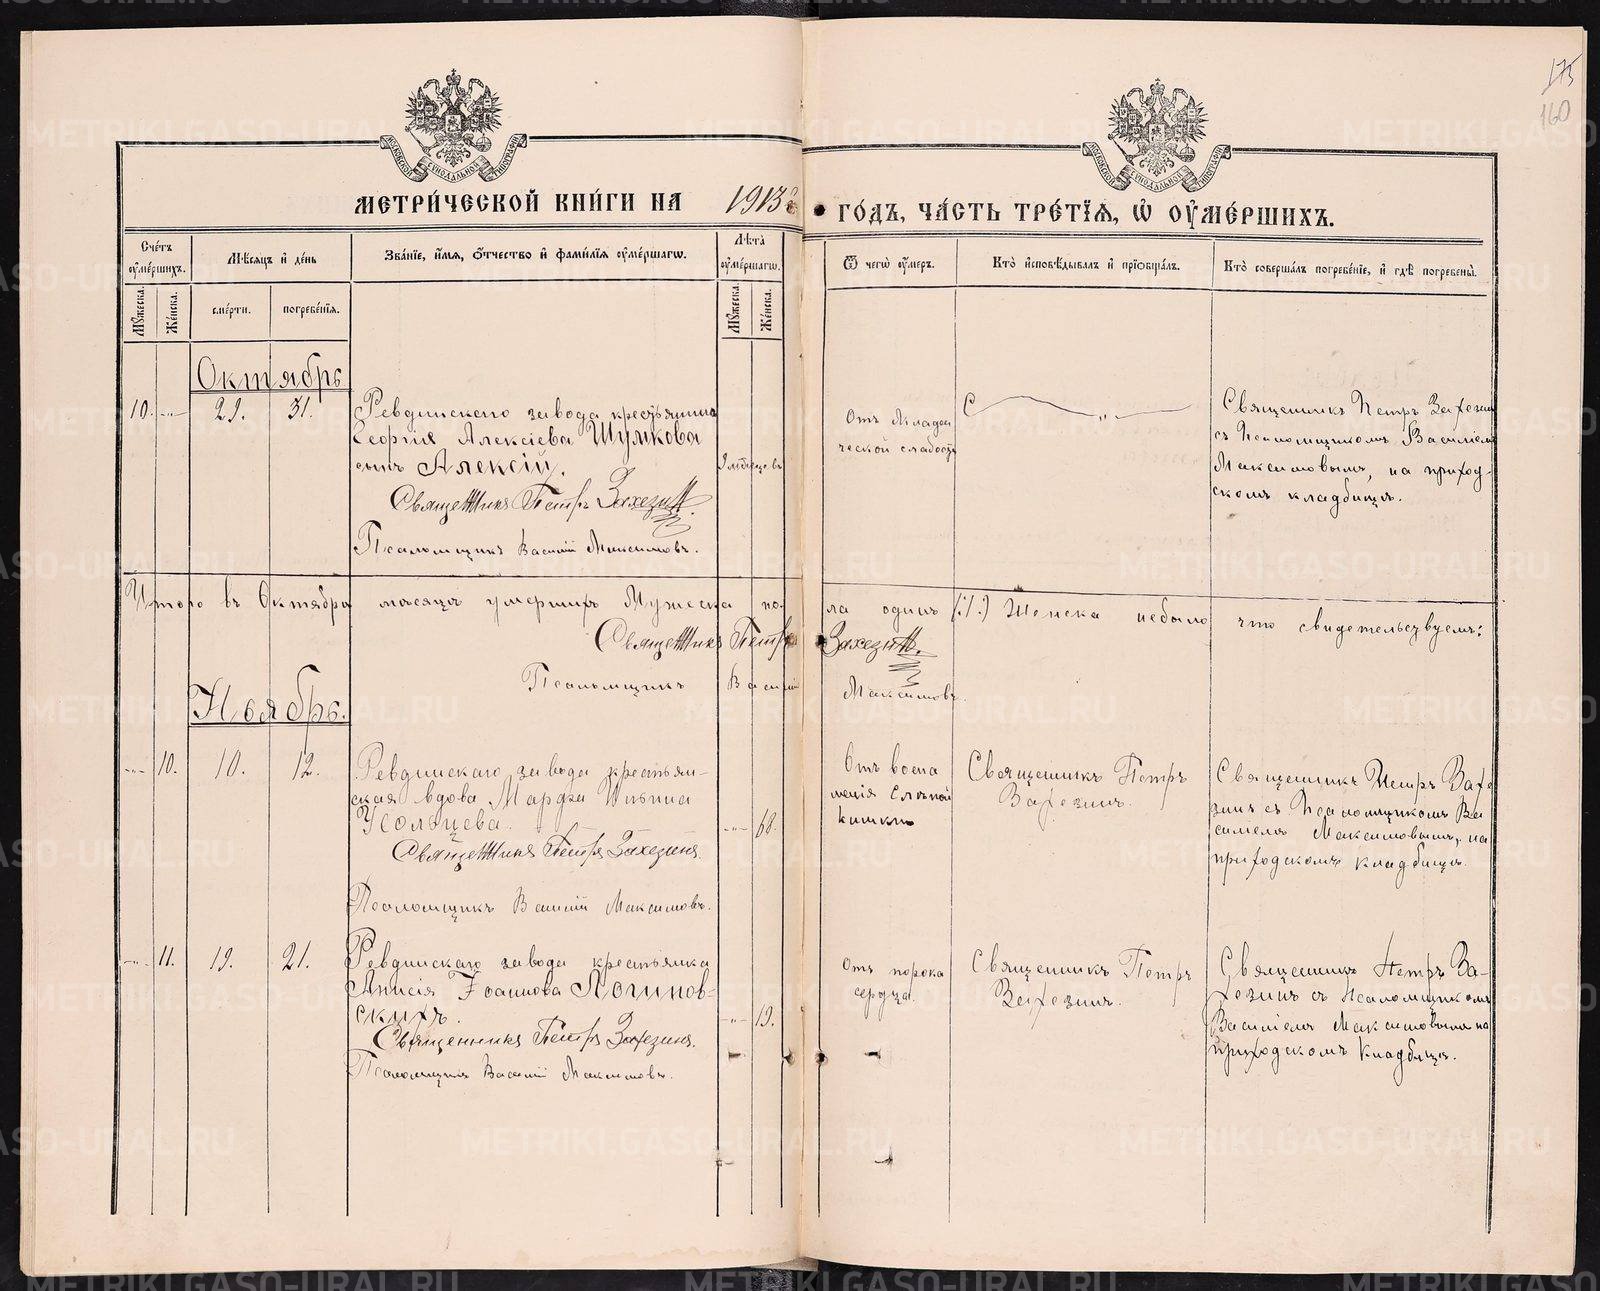 175
160
МЕТРИ́ЧЕСКОЙ КНИ́ГИ НА 1913
ГО́ДЪ, ЧА́СТЬ ТРЕ́ТЇѦ, Ѡ҆ ОУ҆МЕ́РШИХЪ.
Сче́тъ оу҆ме́ршихъ.
Мѣ́сѧцъ и҆ де́нь
Зва́нїе, и҆́мѧ, ѻ҆́тчество и҆ фами́лїѧ оу҆ме́ршагѡ.
Лѣ́та оу҆ме́ршагѡ.
Ѿ чегѡ̀ оу҆́меръ.
Кто̀ и҆сповѣ́дывалъ и҆ прїѻбща́лъ.
Кто̀ соверша́лъ погребе́нїе, и҆ гдѣ̀ погребены̀.
Мꙋ́жеска.
Же́нска.
сме́рти.
погребе́нїѧ.
Мꙋ́жеска.
Же́нска.
Октябрь
10. 29. 31.
Ревдинскаго завода крестьянина
Георгія Алексіева Шумкова
сынъ Алексій.
9 мѣсяцевъ
Священникъ Петръ Захезинъ.
Псаломщикъ Василій Максимовъ.
Отъ младен
ческой слабости
Священникъ Петръ Захезин
съ Псаломщикомъ Василіемъ
Максимовымъ, на приход-
скомъ кладбищѣ.
Итого въ Октябрѣ мѣсяцѣ умершихъ Мужеска по-
ла одинъ (/1/) Женска небыло что свидетельствуемъ:
Священникъ Петръ Захезинъ.
Псаломщикъ Василій Максимовъ.
Ноябрь.
10. 10. 12.
Ревдинскаго завода крестьян-
ская вдова Марфа Ильина
Усольцева.
68.
Священникъ Петръ Захезинъ.
Псаломщикъ Василій Максимовъ.
Отъ воспа
ленія слѣпой
кишки
Священникъ Петръ
Захезинъ.
Священникъ Петръ Захе
зинъ съ Псаломщикомъ Ва
силіемъ Максимовымъ, на
приходскомъ кладбищѣ.
11. 19. 21.
Ревдинскаго завода крестьянка
Анисія Іоаннова Логинов-
скихъ.
19.
Священникъ Петръ Захезинъ.
Псаломщикъ Василій Максимовъ.
Отъ порока
сердца.
Священникъ Петръ
Захезинъ.
Священникъ Петръ За-
хезинъ съ Псаломщикомъ
Василіемъ Максимовымъ на
приходскомъ кладбищѣ.
METRIKI.GASO-URAL.RU